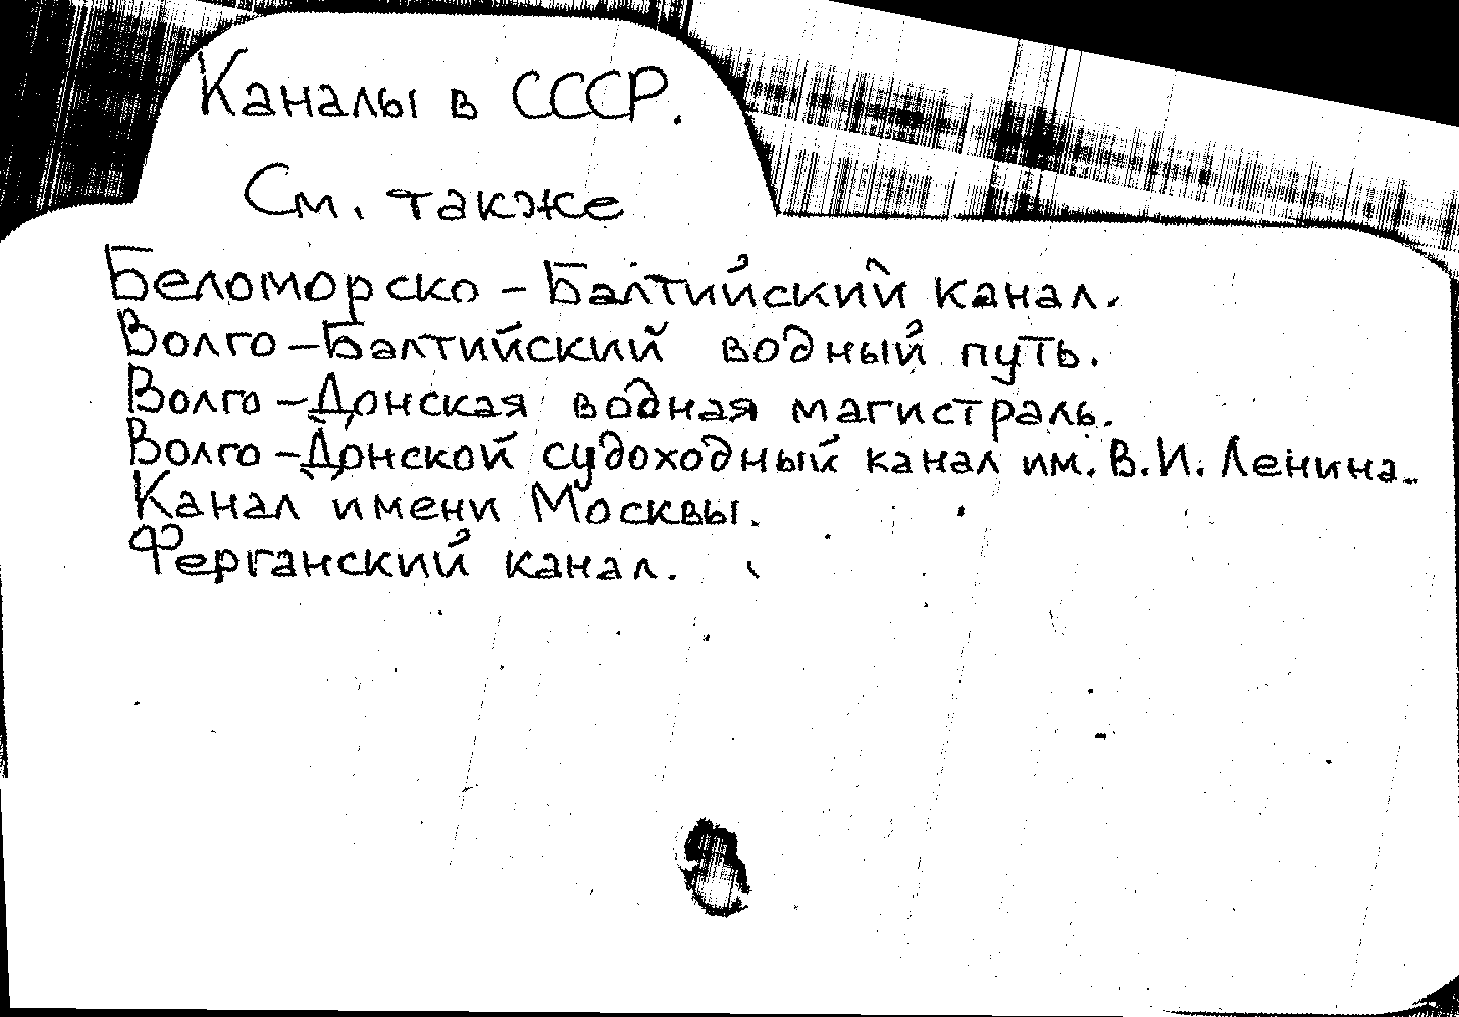 Каналы в СССР.
См. также
Беломорско-Балтийский канал.
Волго-Балтийский водный путь.
Волго-Донская водная магистраль.
Волго-Донской судоходный канал им. В.И. Ленина.
Канал имени Москвы.
Ферганский канал.